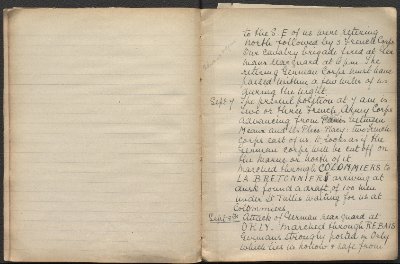 to the S.E of us were retiring
North followed by 3 French Corps
Our cavalry brigade fired at Ger
mans rearguard at 6 p.m. The
retiring German Corps must have
halted within a few miles of us
during the night.
Sept 7 The present position at 7 am is
two or three French Army Corps
advancing from Paris between
Meaux and
Corps east of us. It looks as if the
German Corps will be cut off on
the Marne or north of it
Marched through COLOMMIERS to
LA BRETONNIERE arriving at
dusk found a draft of 100 men
under Lt Tullis waiting for us at
Colommiers.
Sept 8th Attack of German rear guard at
ORLY. Marched through REBAIS
Germans strongly posted in Orly
which lies in hollow & safe from